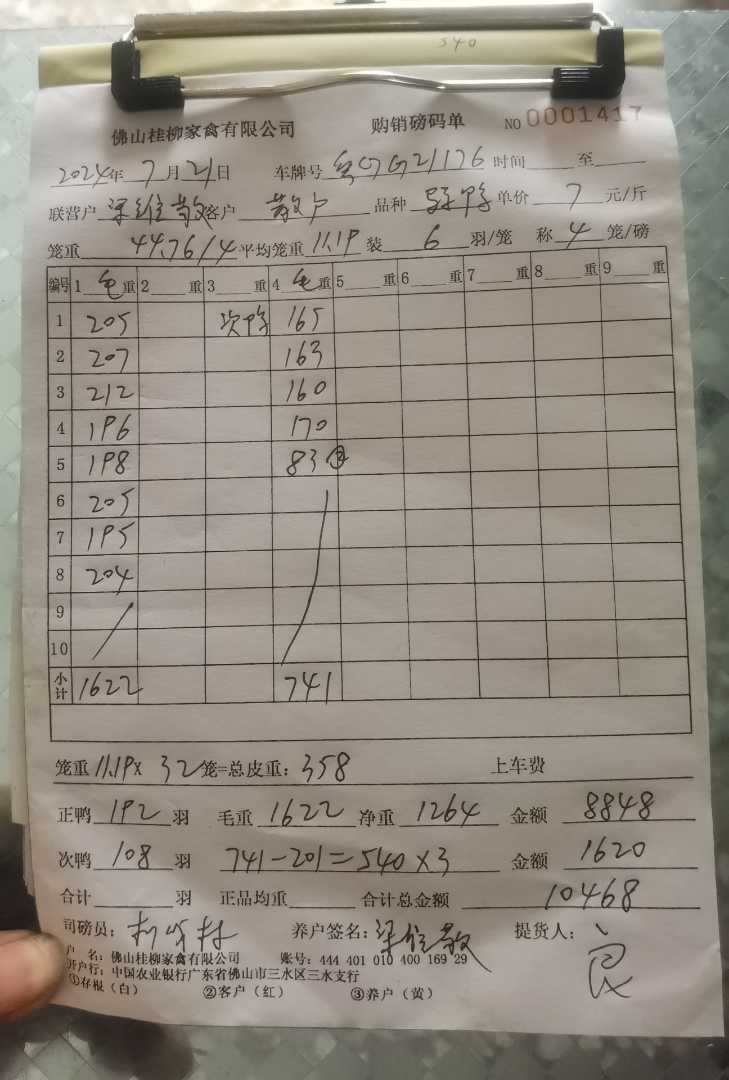 540
佛山桂柳家禽有限公司 购销磅码单 NO 0001417
2024年 7月21日 车牌号 G21176 时间 至
联营户 梁维敬 客户 散户 品种 单价 7 元/斤
笼重 44.76/4 平均笼重 11.19 装 6 羽/笼 称 4 笼/磅
编号 1 毛重 2 重 3 重 4 毛重 5 重 6 重 7 重 8 重 9 重
1 205 次鸭 165
2 207 163
3 212 160
4 196 170
5 198 83②
6 205
7 195
8 204
9
10
小计 1622 741
笼重 11.19 x 32 笼=总皮重: 358 上车费
正鸭 192 羽 毛重 1622 净重 1264 金额 8848
次鸭 108 羽 741-201=540×3 金额 1620
合计 羽 正品均重 合计总金额 10468
司磅员: 养户签名: 梁维敬 提货人:
户 名: 佛山桂柳家禽有限公司 账号: 444 401 010 400 169 29
开户行: 中国农业银行广东省佛山市三水区三水支行
①存根(白) ②客户(红) ③养户(黄)